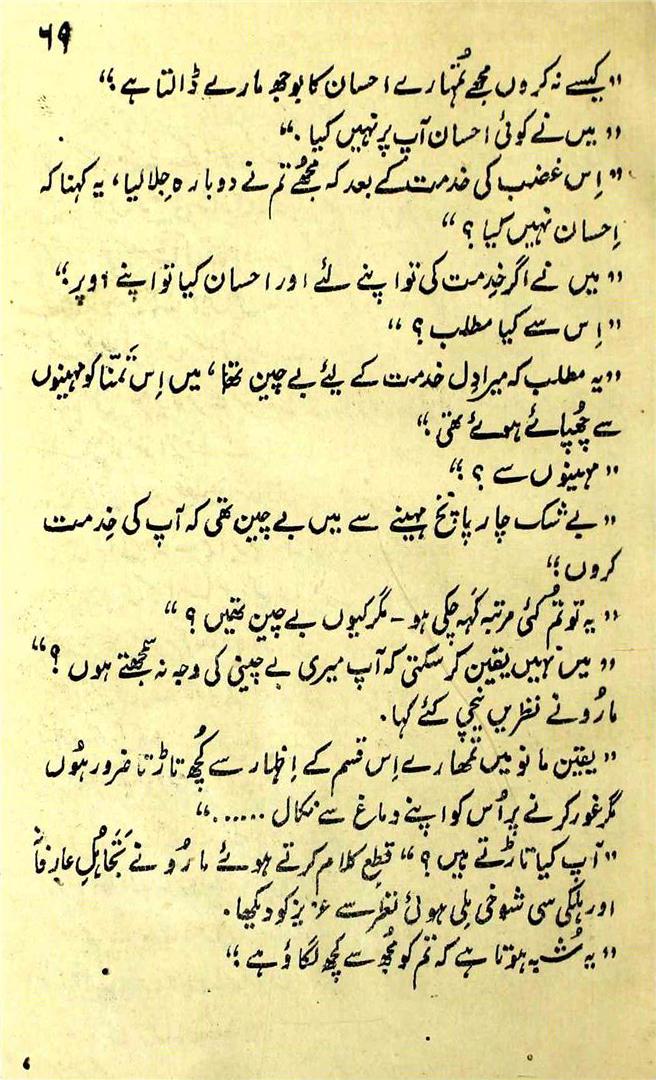 ۶۹
"کیسے نہ کروں مجھے تُمہارے احسان کا بوجھ مارے ڈالتا ہے۔"
"میں نے کوئی احسان آپ پر نہیں کیا۔"
"اِس غضب کی خدمت کے بعد کہ مجھے تم نے دوبارہ جِلا لیا، یہ کہنا کہ
اِحسان نہیں کیا؟"
"میں نے اگر خِدمت کی تو اپنے لئے اور احسان کیا تو اپنے اوپر۔"
"اِس سے کیا مطلب؟"
"یہ مطلب کہ میرا دِل خدمت کے لیئے بے چین تھا، میں اِس تَمنّا کو مہینوں
سے چُھپائے ہوئے تھی۔"
"مہینوں سے؟"
"بے شک چار پانچ مہینے سے میں بے چین تھی کہ آپ کی خِدمت
کروں۔"
"یہ تو تُم کئی مرتبہ کَہہ چکی ہو - مگر کیوں بے چین تھیں؟"
"میں نہیں یقین کر سکتی کہ آپ میری بے چینی کی وجہ نہ سمجھتے ہوں؟"
مارُو نے نظریں نیچی کئے کہا۔
"یقین مانو میں تُمھارے اِس قسم کے اِظہار سے کُچھ تاڑتا ضرور ہُوں
مگر غور کرنے پر اُس کو اپنے دماغ سے نکال ......"
"آپ کیا تاڑتے ہیں؟" قطعِ کلام کرتے ہوئے مارُو نے تَجاہُلِ عارفانہ
اور ہلکی سی شوخی مِلی ہوئی نظر سے عزیز کو دیکھا۔
"یہ شُبہ ہوتا ہے کہ تم کو مُجھ سے کچھ لگاؤ ہے۔"